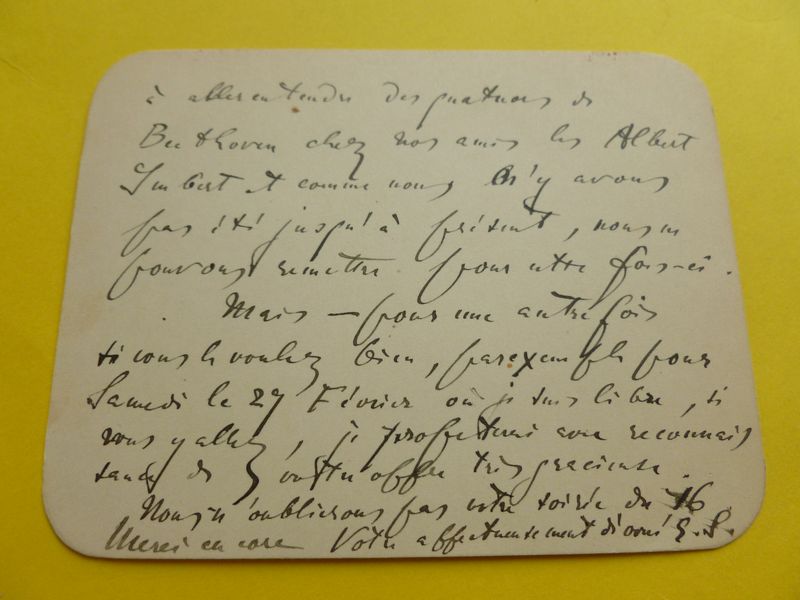 à aller entendre des quatuors de
Beethoven chez nos amis les Albert
Imbert et comme nous n'y avons
pas été jusqu'à présent, nous ne
pouvons remettre pour cette fois-ci.
Mais – pour une autre fois
si vous le voulez bien, par exemple pour
Samedi le 29 Février où je suis libre, si
vous y allez, je profiterai avec reconnais
sance de votre offre très gracieuse.
Nous n'oublierons pas votre soirée du 16
Merci encore Votre affectueusement dévoué E.S.